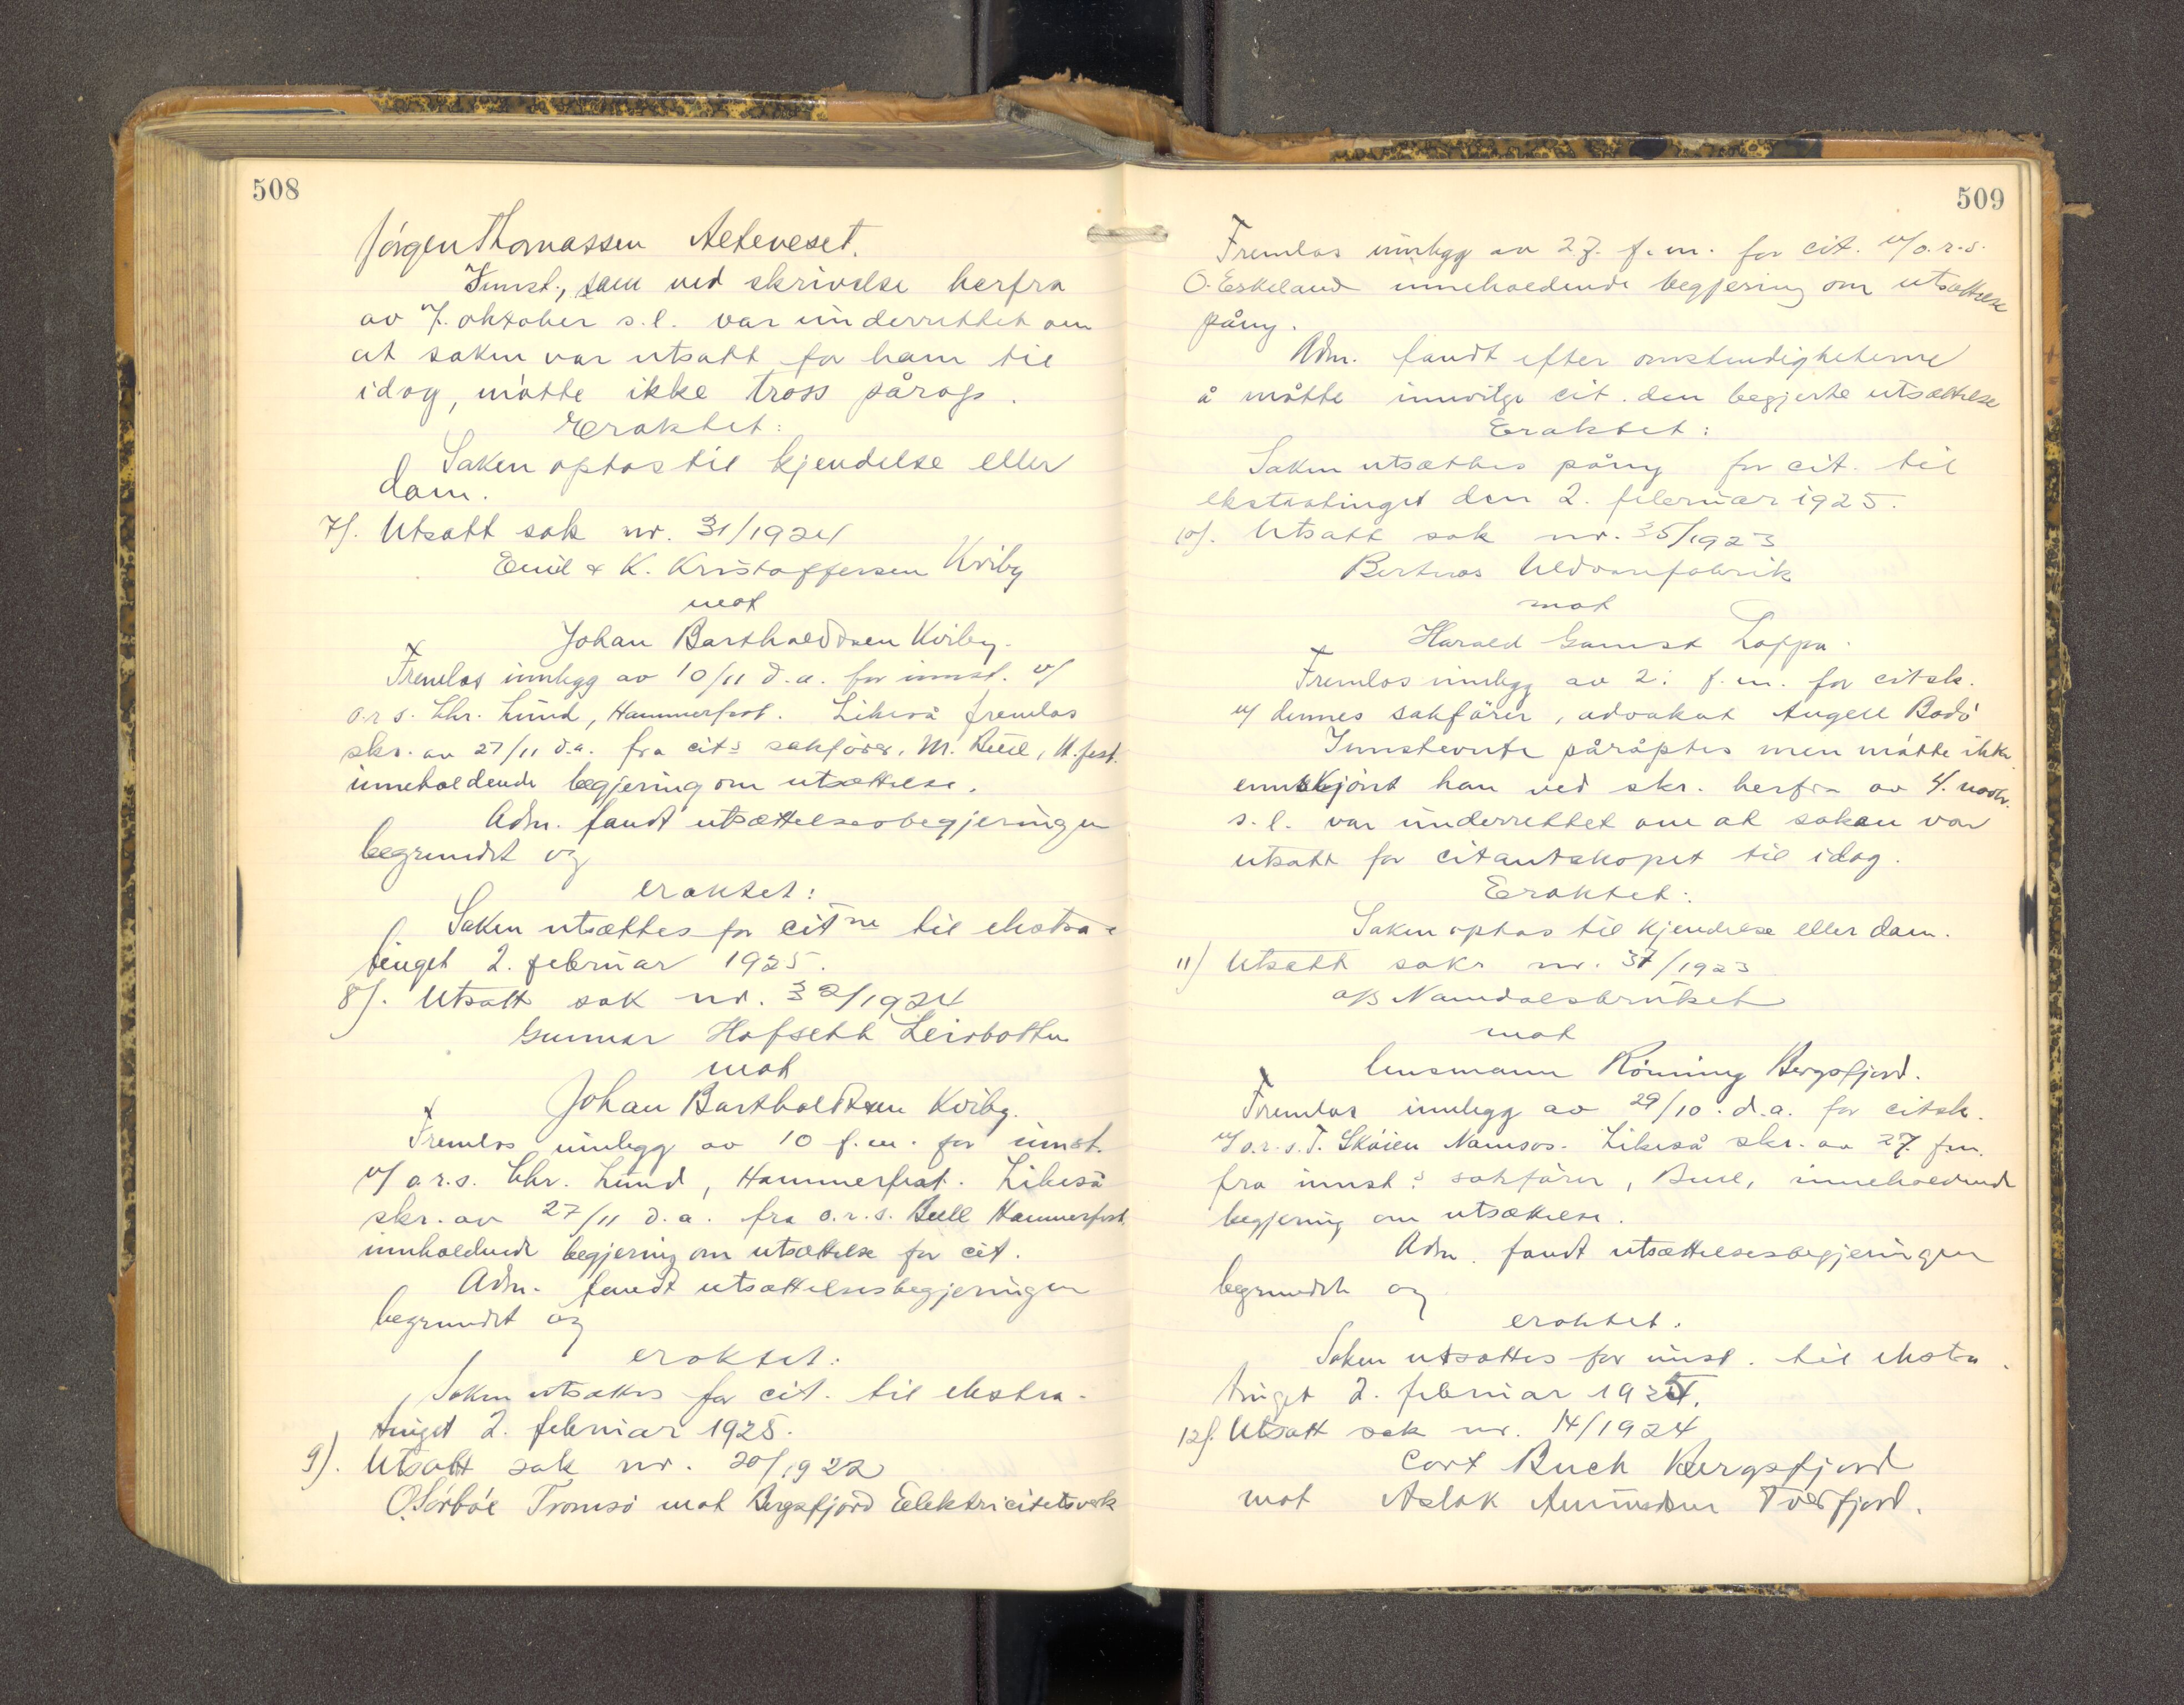 508
Jörgen Thomassen Alteneset.
Innst., som ved skrivelse herfra
av 7. oktober s.l. var underrettet om
at saken var utsatt for ham til
idag, møtte ikke tross pårop.
Eraktet:
Saken optas til kjendelse eller
dom.
7). Utsatt sak nr. 31/1924
Emil & K. Kristoffersen Kviby
mot
Johan Bartholdsen Kviby.
Fremlas innlegg av 10/11 d.a. for innst. v/
o.r.s. Chr. Lund, Hammerfest. Likeså fremlas
skr. av 27/11 d.a. fra cit.s sakfører, M. Bull, H.fest.
inneholdende begjering om utsættelse.
Adm. fandt utsættelsesbegjeringen
begrundet og
eraktet:
Saken utsættes for citne til ekstra-
tinget 2. februar 1925.
8). Utsatt sak nr. 32/1924
Gunnar Hofseth Leirbotten
mot
Johan Bartholdsen Kviby.
Fremlas innlegg av 10 f.m. for innst.
v/ o.r.s. Chr. Lund, Hammerfest. Likeså
skr. av 27/11 d.a. fra o.r.s. Bull Hammerfest,
innholdende begjering om utsættelse for cit.
Adm. fandt utsættelsesbegjeringen
begrundet og
eraktet:
Saken utsættes for cit. til ekstra-
tinget 2. februar 1925.
9). Utsatt sak nr. 20/1922
O. Sørbøe Tromsö mot Bergsfjord Elektricitetsverk
509
Fremlas innlegg av 27. f.m. for cit. v/o.r.s.
O. Eskeland inneholdende begjering om utsættelse
påny.
Adm. fandt efter omstendighetene
å måtte innvilge cit. den begjerte utsættelse
Eraktet:
Saken utsættes påny for cit. til
ekstratinget den 2. februar 1925.
10). Utsatt sak nr. 35/1923
Uldvarefabrik
mot
Harald Gamst Loppa.
Fremlas innlegg av 2. f.m. for citsk.
v/ dennes sakfører, advokat Angell Bodö
Innstevnte påråptes men møtte ikke
ennskjönt han ved skr. herfra av 4. novbr.
s.l. var underrettet om at saken var
utsatt for citantskapet til idag.
Eraktet:
Saken optas til kjendelse eller dom.
11) Utsatt sak nr. 37/1923
A/S Namdalsbruket
mot
lensmann Rönning Bergsfjord.
Fremlas innlegg av 29/10. d.a. for citsk.
v/o.r.s. T. Sköien Namsos. Likeså skr. av 27. f.m.
fra innst.s sakfører, Bull, inneholdende
begjering om utsættelse.
Adm. fandt utsættelsesbegjeringen
begrundet og
eraktet:
Saken utsættes for innst. til ekstra-
tinget 2. februar 1925.
12). Utsatt sak nr. 14/1924
Cort Buch Bergsfjord
mot Aslak Amundsen Tverfjord.